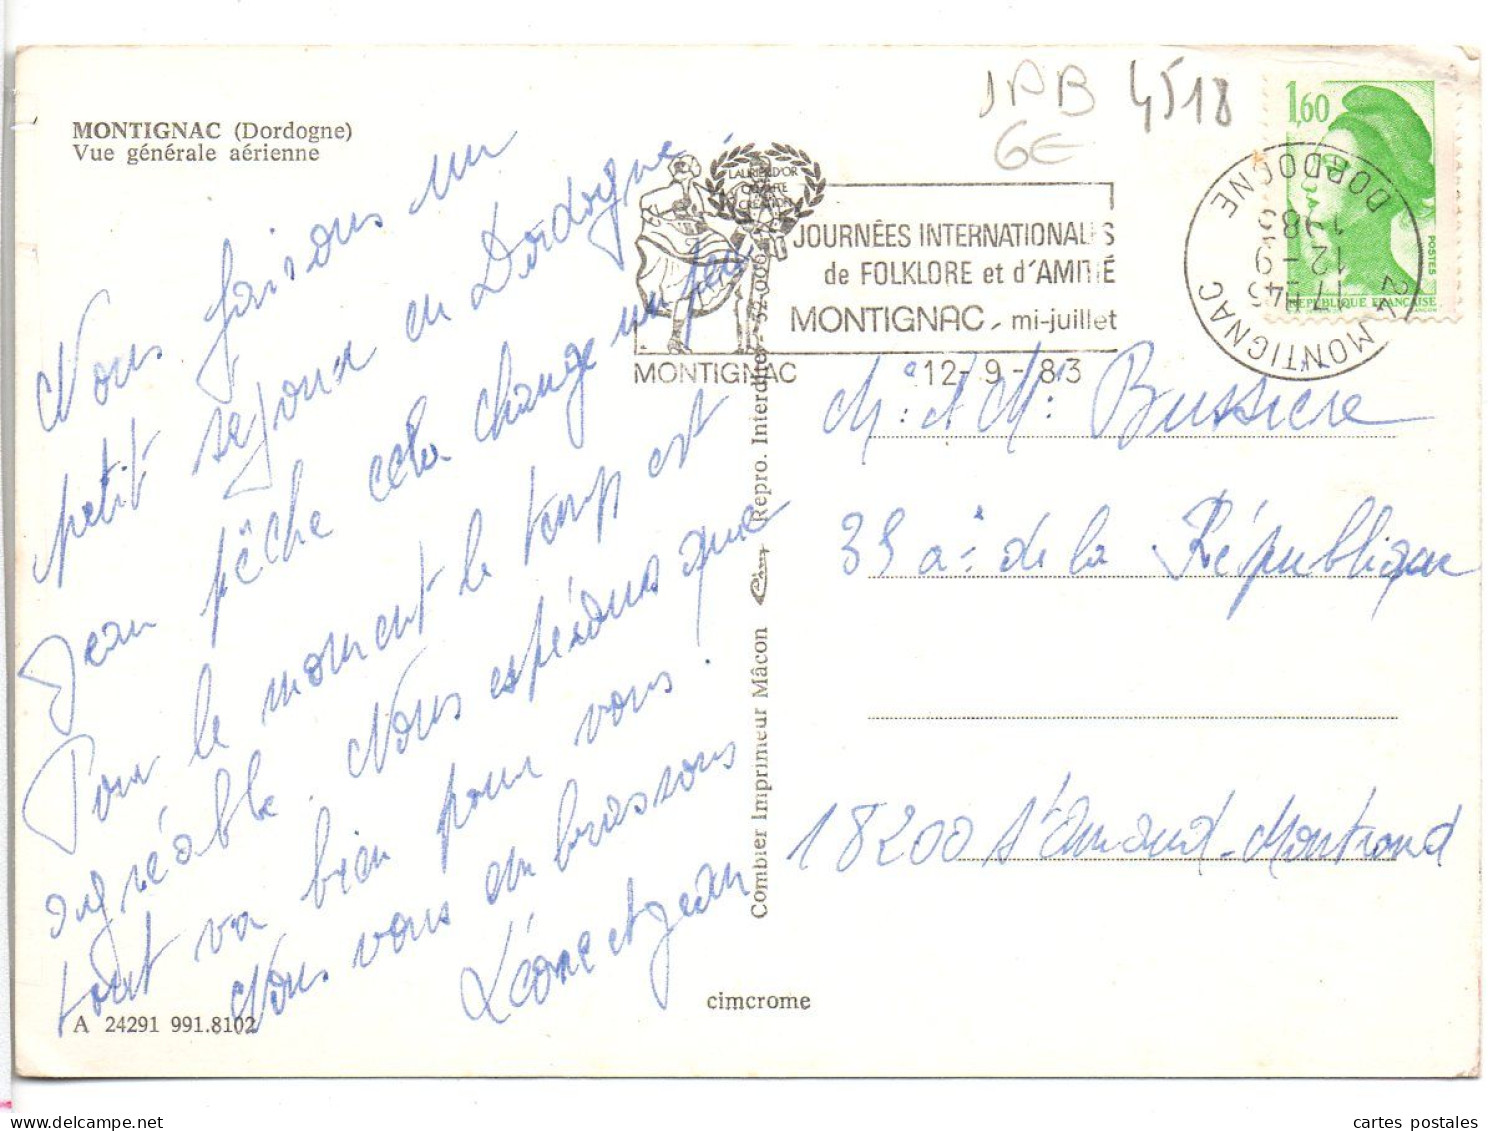 MONTIGNAC (Dordogne)
Vue générale aérienne
Nous faisons un
petit séjour en Dordogne
Jean pêche cela change un peu
Pour le moment le temps est
agréable. Nous espérons que
tout va bien pour vous.
Nous vous embrassons
Léone et Jean
A 24291 991.8102
cimcrome
Combier Imprimeur Mâcon
Repro. Interdite
JAB 4518
6E
LAURIER D'OR
JOURNÉES INTERNATIONALES
de FOLKLORE et d'AMITIÉ
MONTIGNAC - mi-juillet
MONTIGNAC
12-9-83
24 MONTIGNAC
17H45
12-9
1983
DORDOGNE
1,60
POSTES
REPUBLIQUE FRANÇAISE
Mr et Me Bussiere
39 ae de la République
18200 St Amand-Montrond
cartes postales